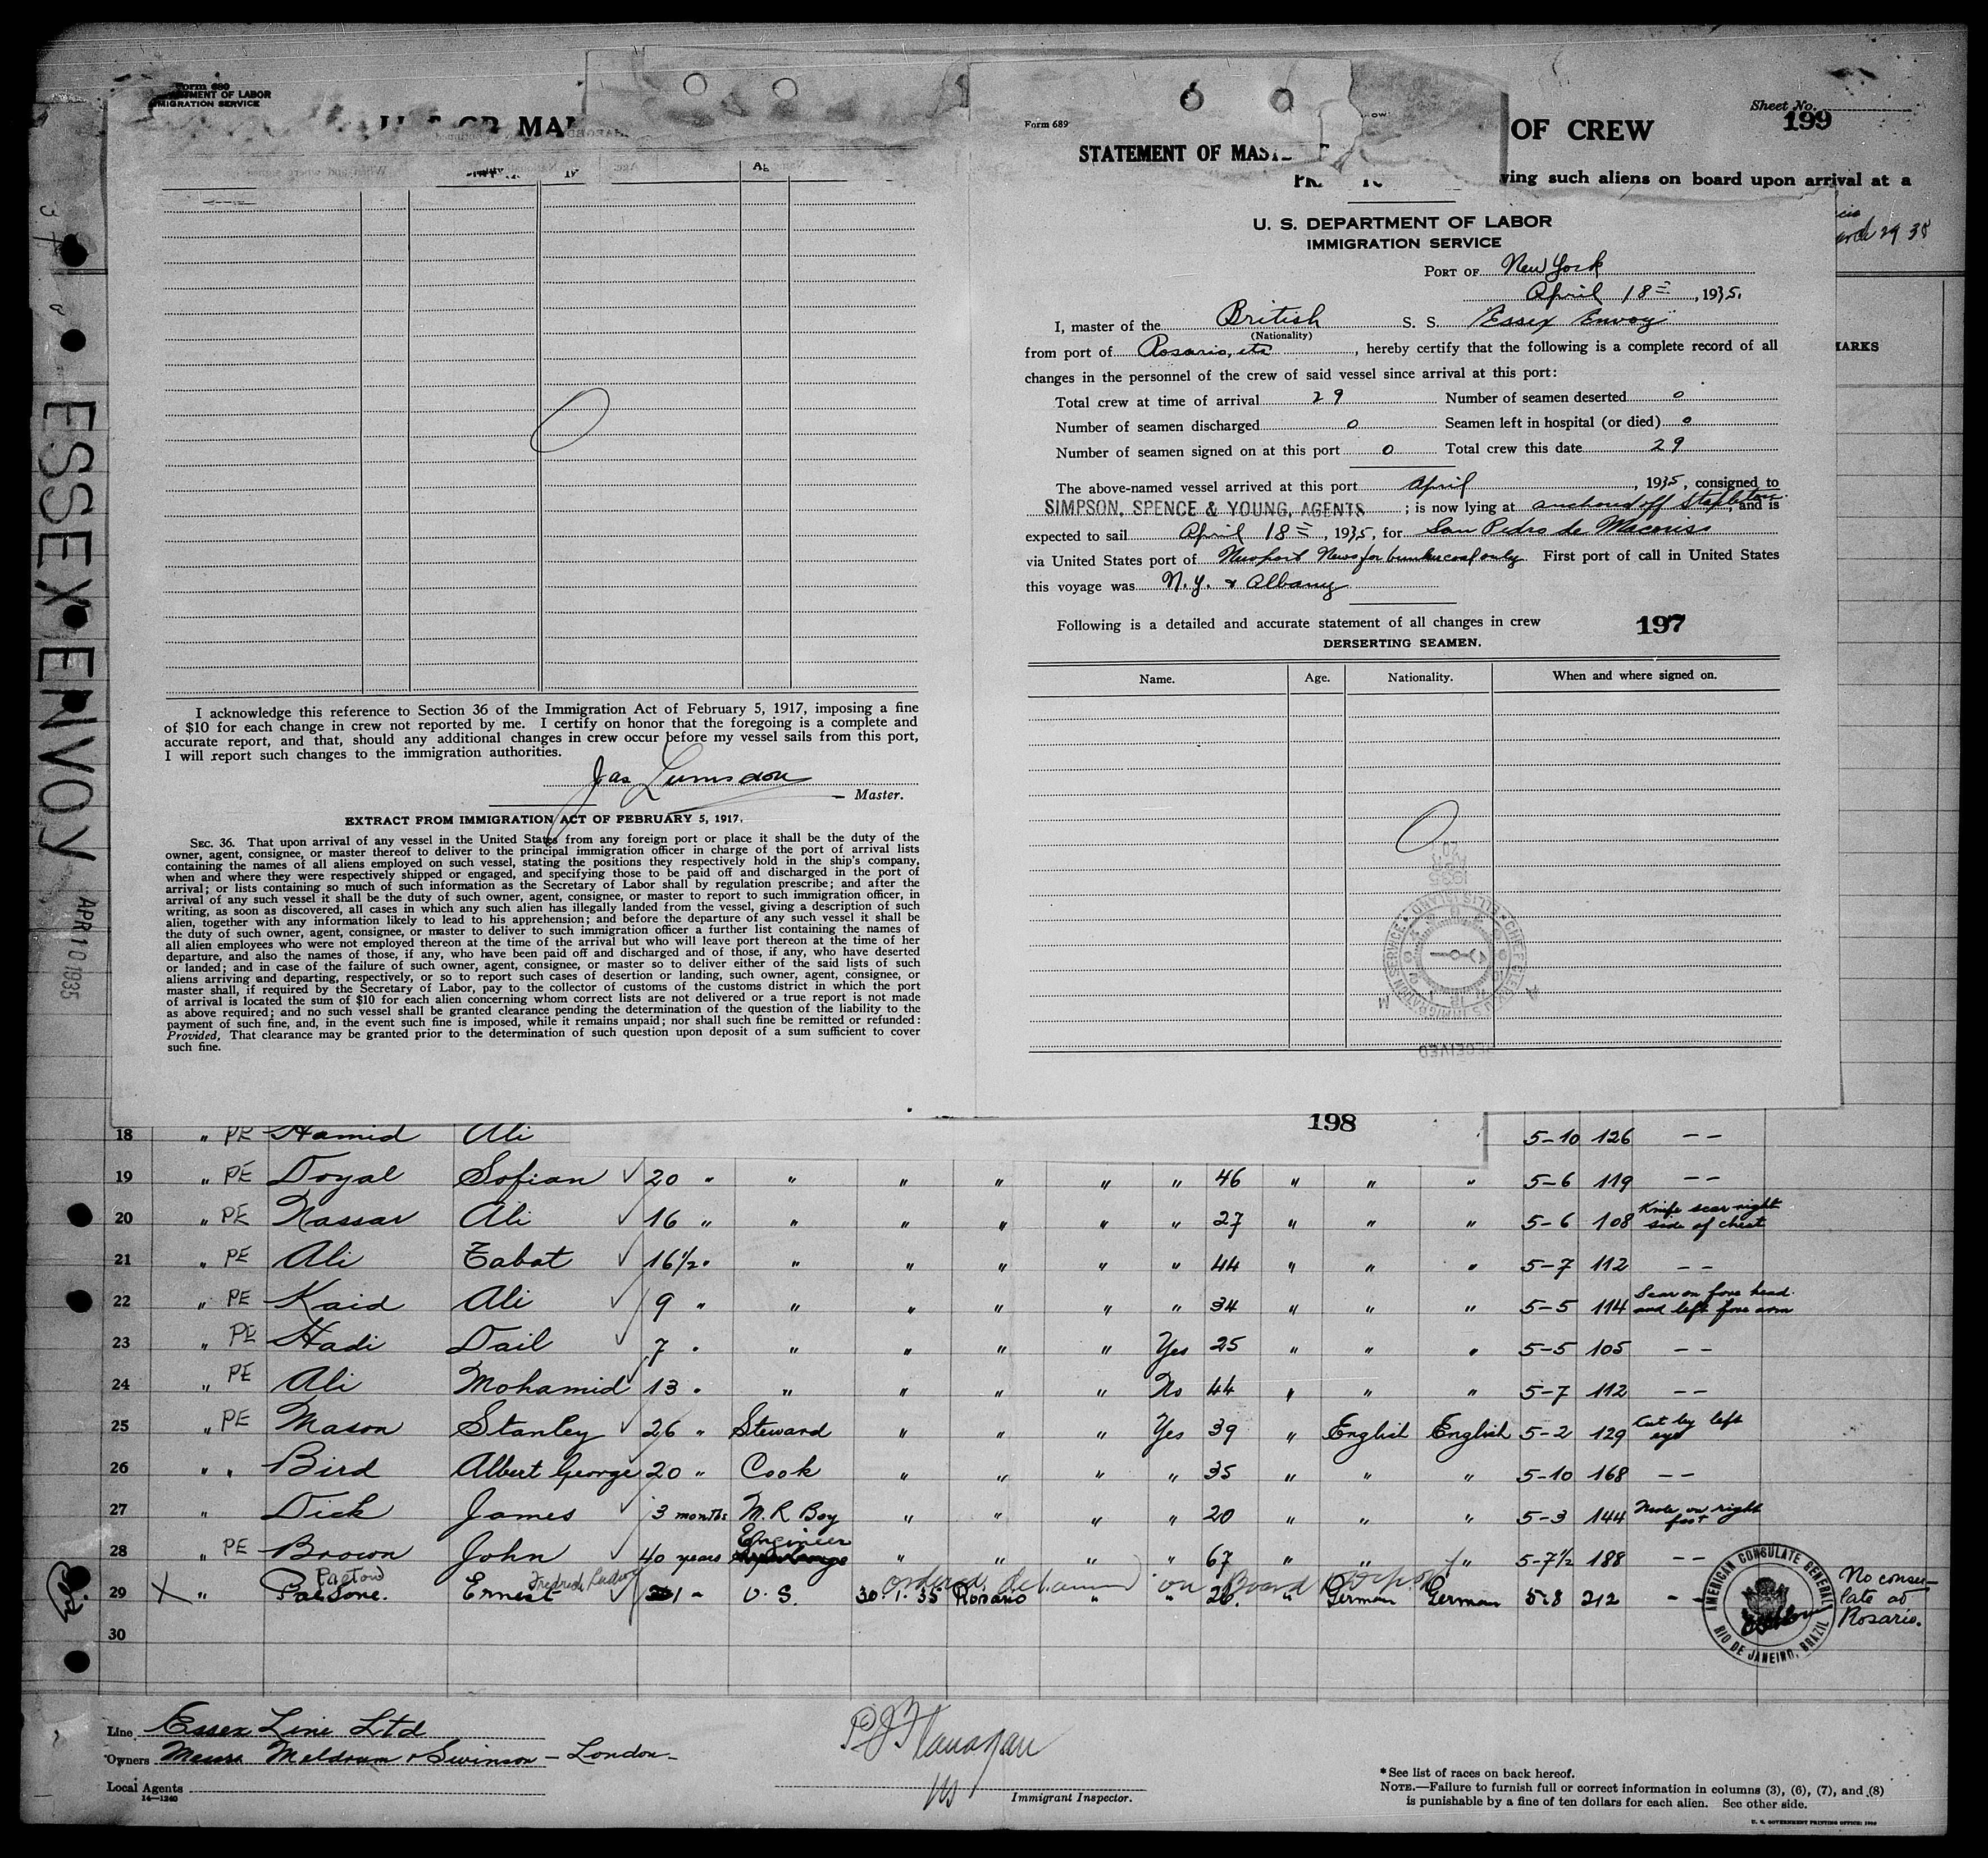 Form 680
DEPARTMENT OF LABOR
IMMIGRATION SERVICE
OF CREW
Sheet No.
199
ving such aliens on board upon arrival at a
29 35
MARKS
ESSEX ENVOY
APR 10 1935
I acknowledge this reference to Section 36 of the Immigration Act of February 5, 1917, imposing a fine
of $10 for each change in crew not reported by me. I certify on honor that the foregoing is a complete and
accurate report, and that, should any additional changes in crew occur before my vessel sails from this port,
I will report such changes to the immigration authorities.
Jas Lumsdon
Master.
EXTRACT FROM IMMIGRATION ACT OF FEBRUARY 5, 1917.
SEC. 36. That upon arrival of any vessel in the United States from any foreign port or place it shall be the duty of the
owner, agent, consignee, or master thereof to deliver to the principal immigration officer in charge of the port of arrival lists
containing the names of all aliens employed on such vessel, stating the positions they respectively hold in the ship's company,
when and where they were respectively shipped or engaged, and specifying those to be paid off and discharged in the port of
arrival; or lists containing so much of such information as the Secretary of Labor shall by regulation prescribe; and after the
arrival of any such vessel it shall be the duty of such owner, agent, consignee, or master to report to such immigration officer, in
writing, as soon as discovered, all cases in which any such alien has illegally landed from the vessel, giving a description of such
alien, together with any information likely to lead to his apprehension; and before the departure of any such vessel it shall be
the duty of such owner, agent, consignee, or master to deliver to such immigration officer a further list containing the names of
all alien employees who were not employed thereon at the time of the arrival but who will leave port thereon at the time of her
departure, and also the names of those, if any, who have been paid off and discharged and of those, if any, who have deserted
or landed; and in case of the failure of such owner, agent, consignee, or master so to deliver either of the said lists of such
aliens arriving and departing, respectively, or so to report such cases of desertion or landing, such owner, agent, consignee, or
master shall, if required by the Secretary of Labor, pay to the collector of customs of the customs district in which the port
of arrival is located the sum of $10 for each alien concerning whom correct lists are not delivered or a true report is not made
as above required; and no such vessel shall be granted clearance pending the determination of the question of the liability to the
payment of such fine, and, in the event such fine is imposed, while it remains unpaid; nor shall such fine be remitted or refunded:
Provided, That clearance may be granted prior to the determination of such question upon deposit of a sum sufficient to cover
such fine.
Form 689
STATEMENT OF MASTE
U. S. DEPARTMENT OF LABOR
IMMIGRATION SERVICE
PORT OF New York
April 18=, 1935.
I, master of the British S. S. "Essex Envoy"
(Nationality)
from port of Rosario, etc, hereby certify that the following is a complete record of all
changes in the personnel of the crew of said vessel since arrival at this port:
Total crew at time of arrival 29 Number of seamen deserted 0
Number of seamen discharged 0 Seamen left in hospital (or died) 0
Number of seamen signed on at this port 0 Total crew this date 29
The above-named vessel arrived at this port April, 1935, consigned to
SIMPSON, SPENCE & YOUNG, AGENTS; is now lying at anchored off Stapleton, and is
expected to sail April 18=, 1935, for San Pedro de Macoris
via United States port of Newport News for bunker coal only. First port of call in United States
this voyage was N.Y. & Albany
Following is a detailed and accurate statement of all changes in crew
197
DERSERTING SEAMEN.
Name. Age. Nationality. When and where signed on.
198
18 " PE Hamid Ali 5-10 126 - -
19 " PE Doyal Sofian ✓ 20 " " " " " " 46 " " " 5-6 119 - -
20 " PE Nassar Ali ✓ 16 " " " " " " 27 " " " 5-6 108 Knife scar right side of chest
21 " PE Ali Tabat ✓ 16½ " " " " " " 44 " " " 5-7 112 - -
22 " PE Kaid Ali ✓ 9 " " " " " " 34 " " " 5-5 114 Scar on fore head and left fore arm
23 " PE Hadi Dail ✓ 7 " " " " " Yes 25 " " " 5-5 105 - -
24 " PE Ali Mohamid ✓ 13 " " " " " No 44 " " " 5-7 112 - -
25 " PE Mason Stanley ✓ 26 " Steward " " " Yes 39 " English English 5-2 129 Cut by left eye
26 " " Bird Albert George 20 " Cook " " " " 35 " " " 5-10 168 - -
27 " Dick James ✓ 3 months M. R Boy " " " " 20 " " " 5-3 144 Mole on right foot
28 " PE Brown John ✓ 40 years Engineer " " " " 67 " " " 5-7½ 188 - -
29 X " Ernest ✓ 1 " U. S. 30.1.35 Rosario " " 26. " German German 5-8 212 - -
ordered detained on Board
No consulate at Rosario.
AMERICAN CONSULATE GENERAL
RIO DE JANEIRO, BRAZIL
30
Line Essex Line Ltd
Owners Messrs Meldrum & Swinson - London -
Local Agents
14—1240
P J Flanagan
Immigrant Inspector.
* See list of races on back hereof.
NOTE.—Failure to furnish full or correct information in columns (3), (6), (7), and (8)
is punishable by a fine of ten dollars for each alien. See other side.